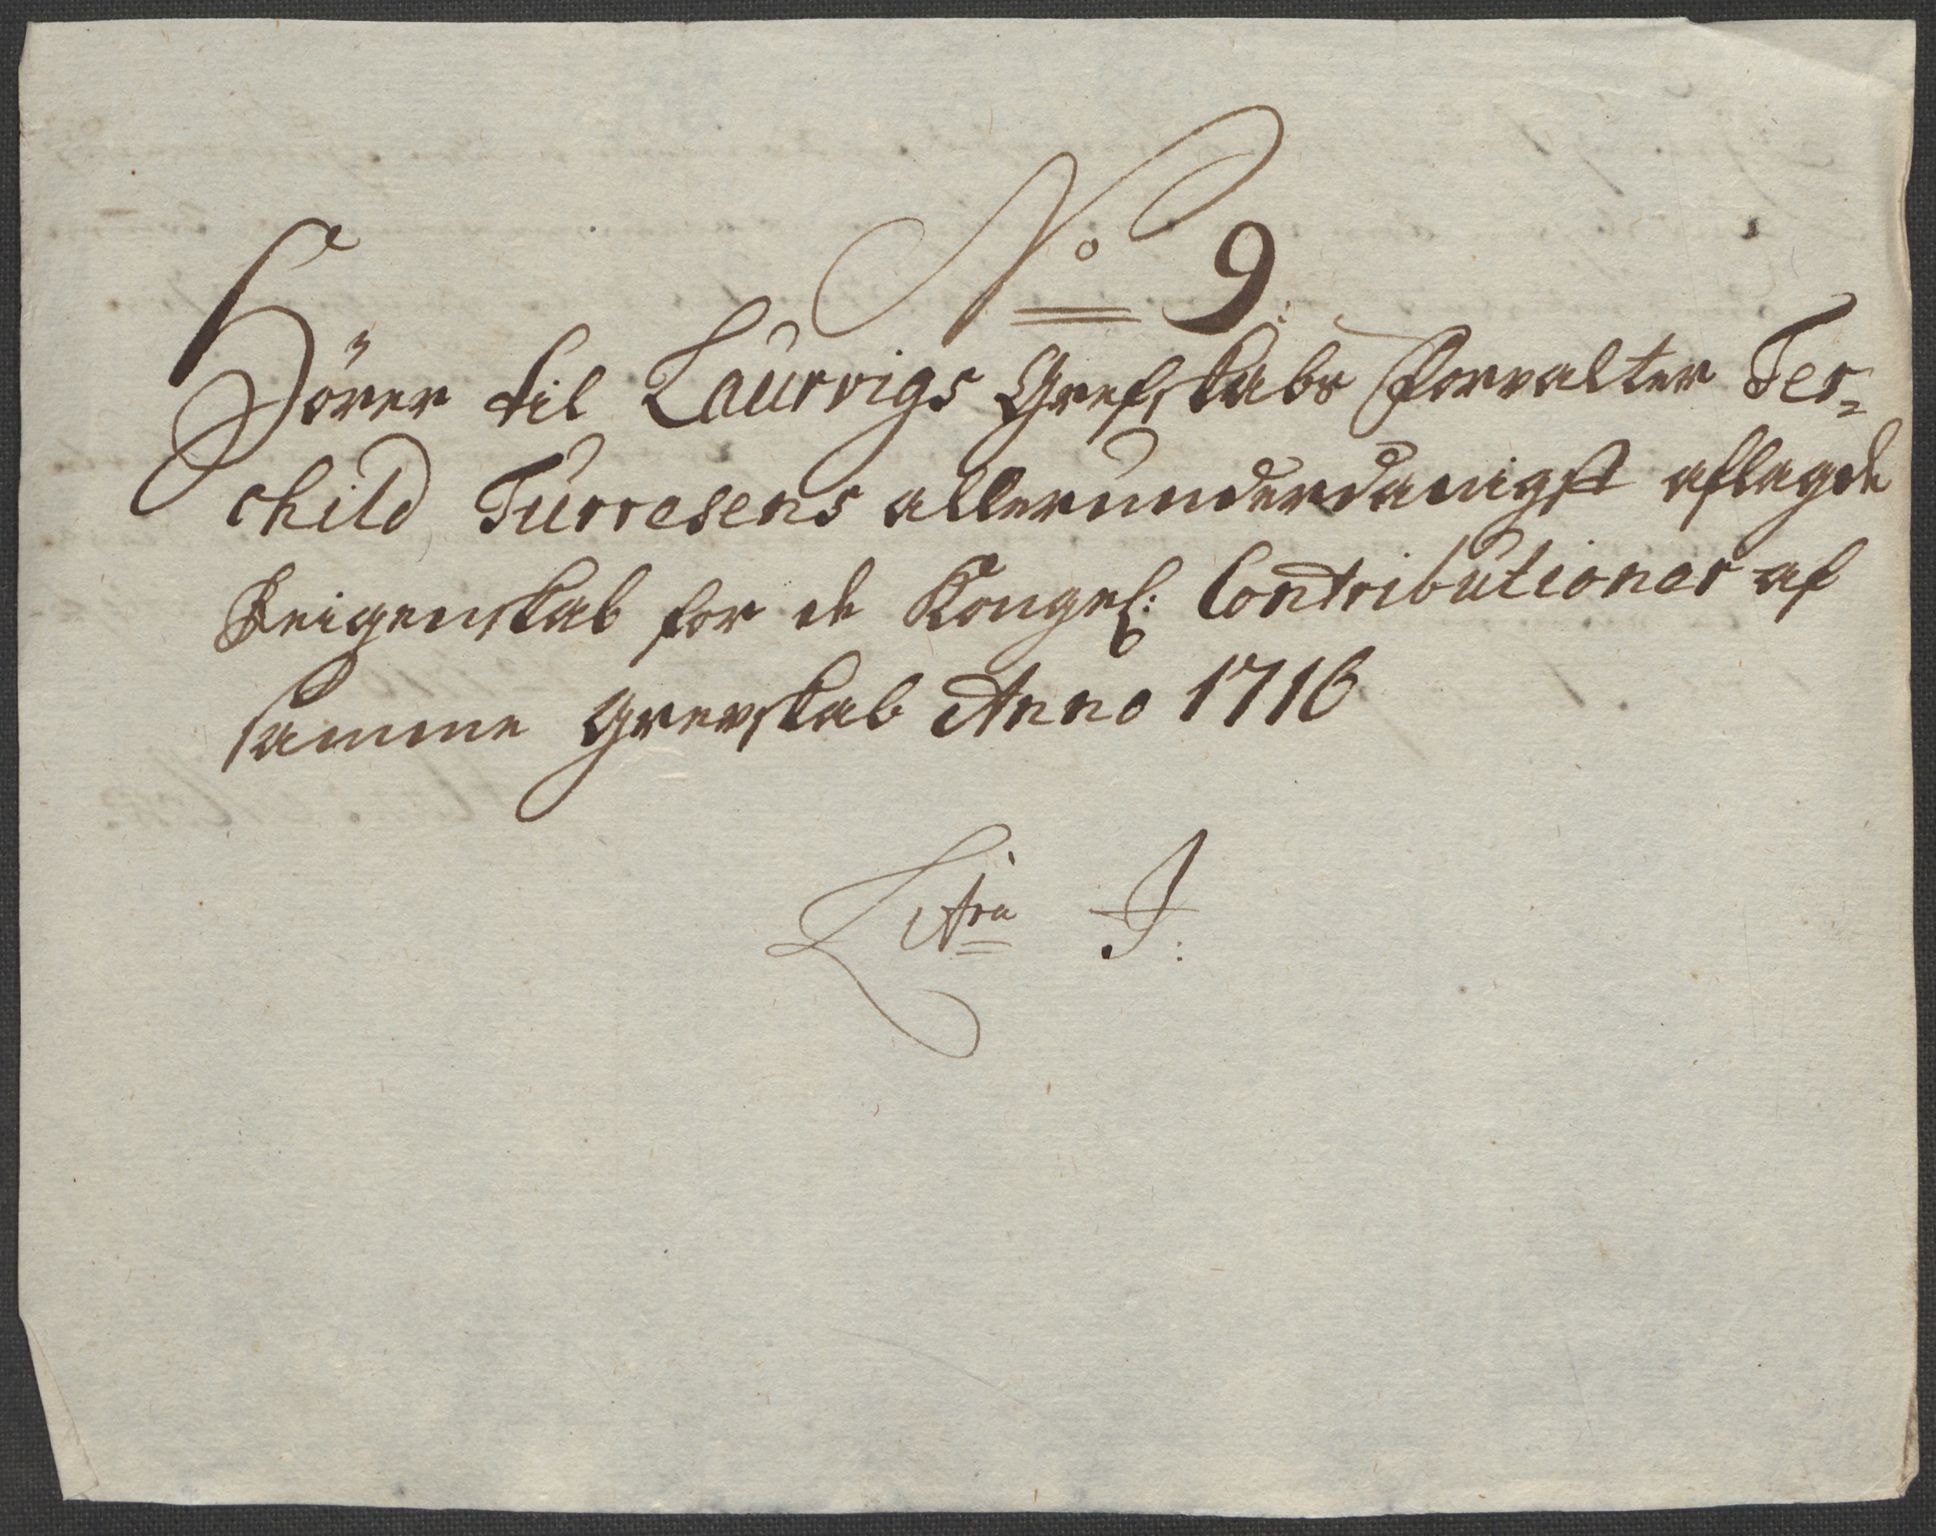 No 9.
Hörer til Laurvigs Grefskabs Forvalter Ter-
child Turresens allerunderdanigst aflegde
Reigenskab for de Kongel: Contributioner af
samme Grevskab Anno 1716
Litra J: